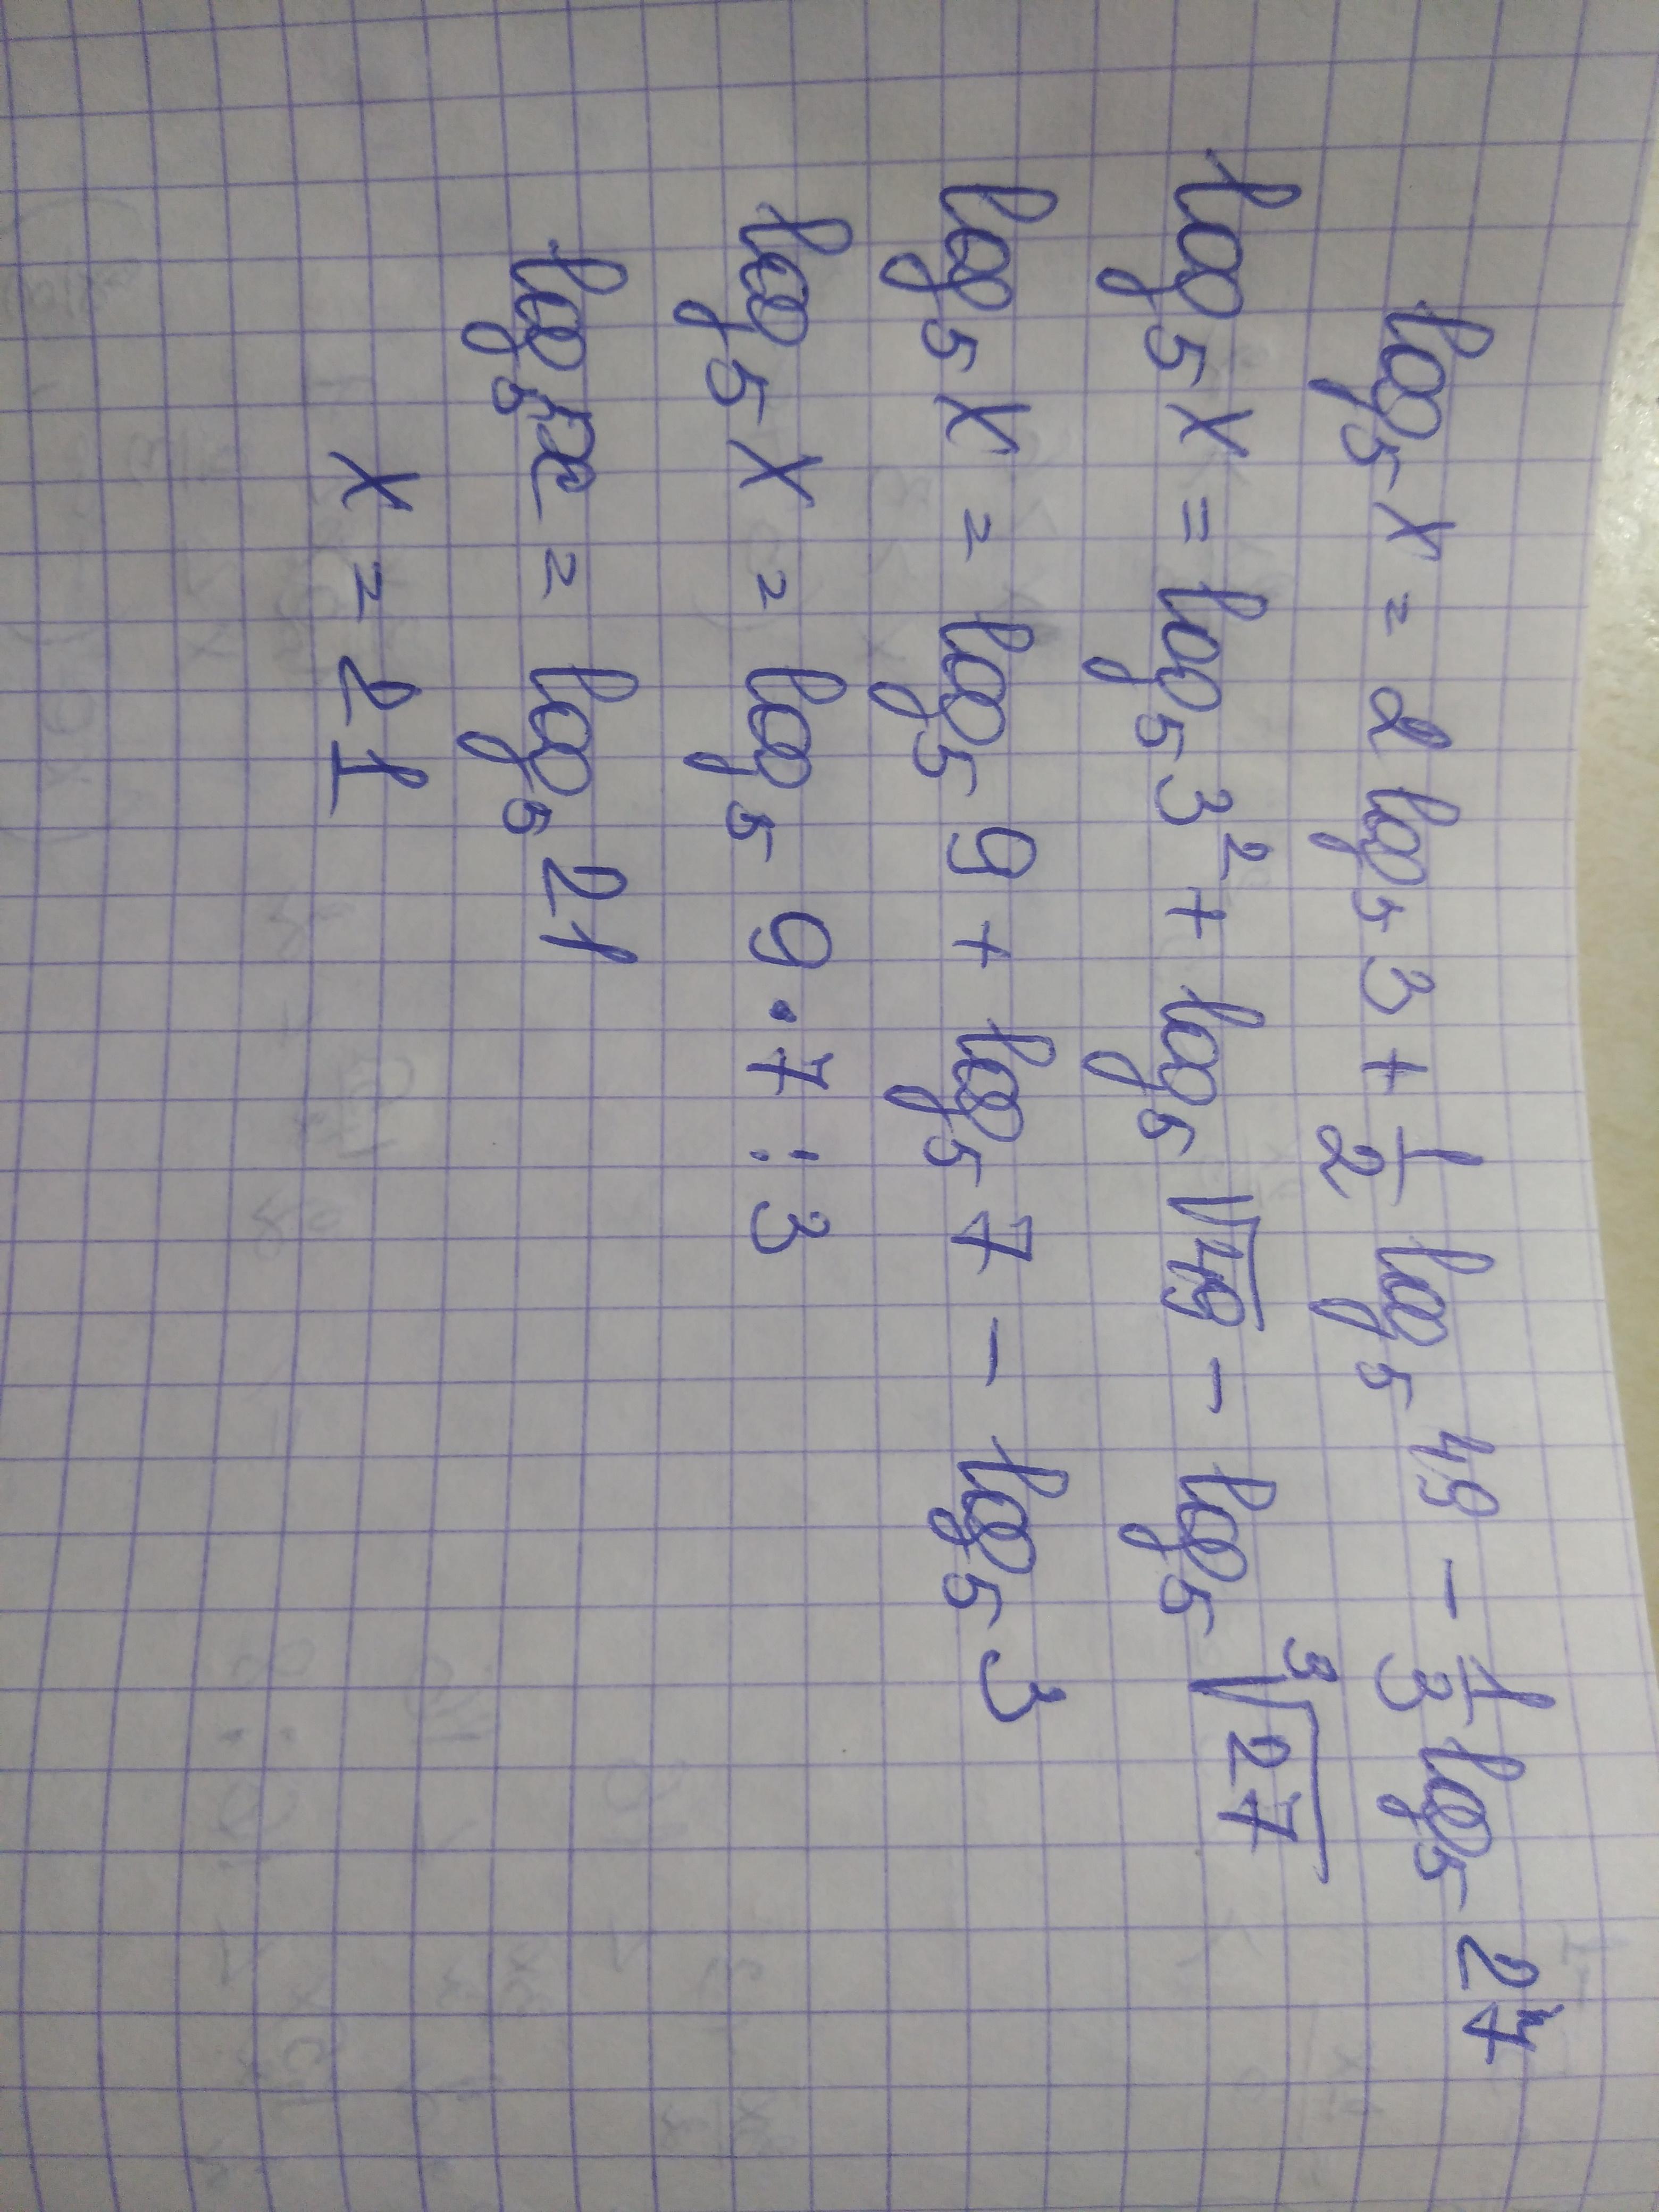 log₅ x = 2 log₅ 3 + 1/2 log₅ 49 − 1/3 log₅ 27
log₅ x = log₅ 3² + log₅ √49 − log₅ ³√27
log₅ x = log₅ 9 + log₅ 7 − log₅ 3
log₅ x = log₅ 9 · 7 : 3
log₅ x = log₅ 21
x = 21